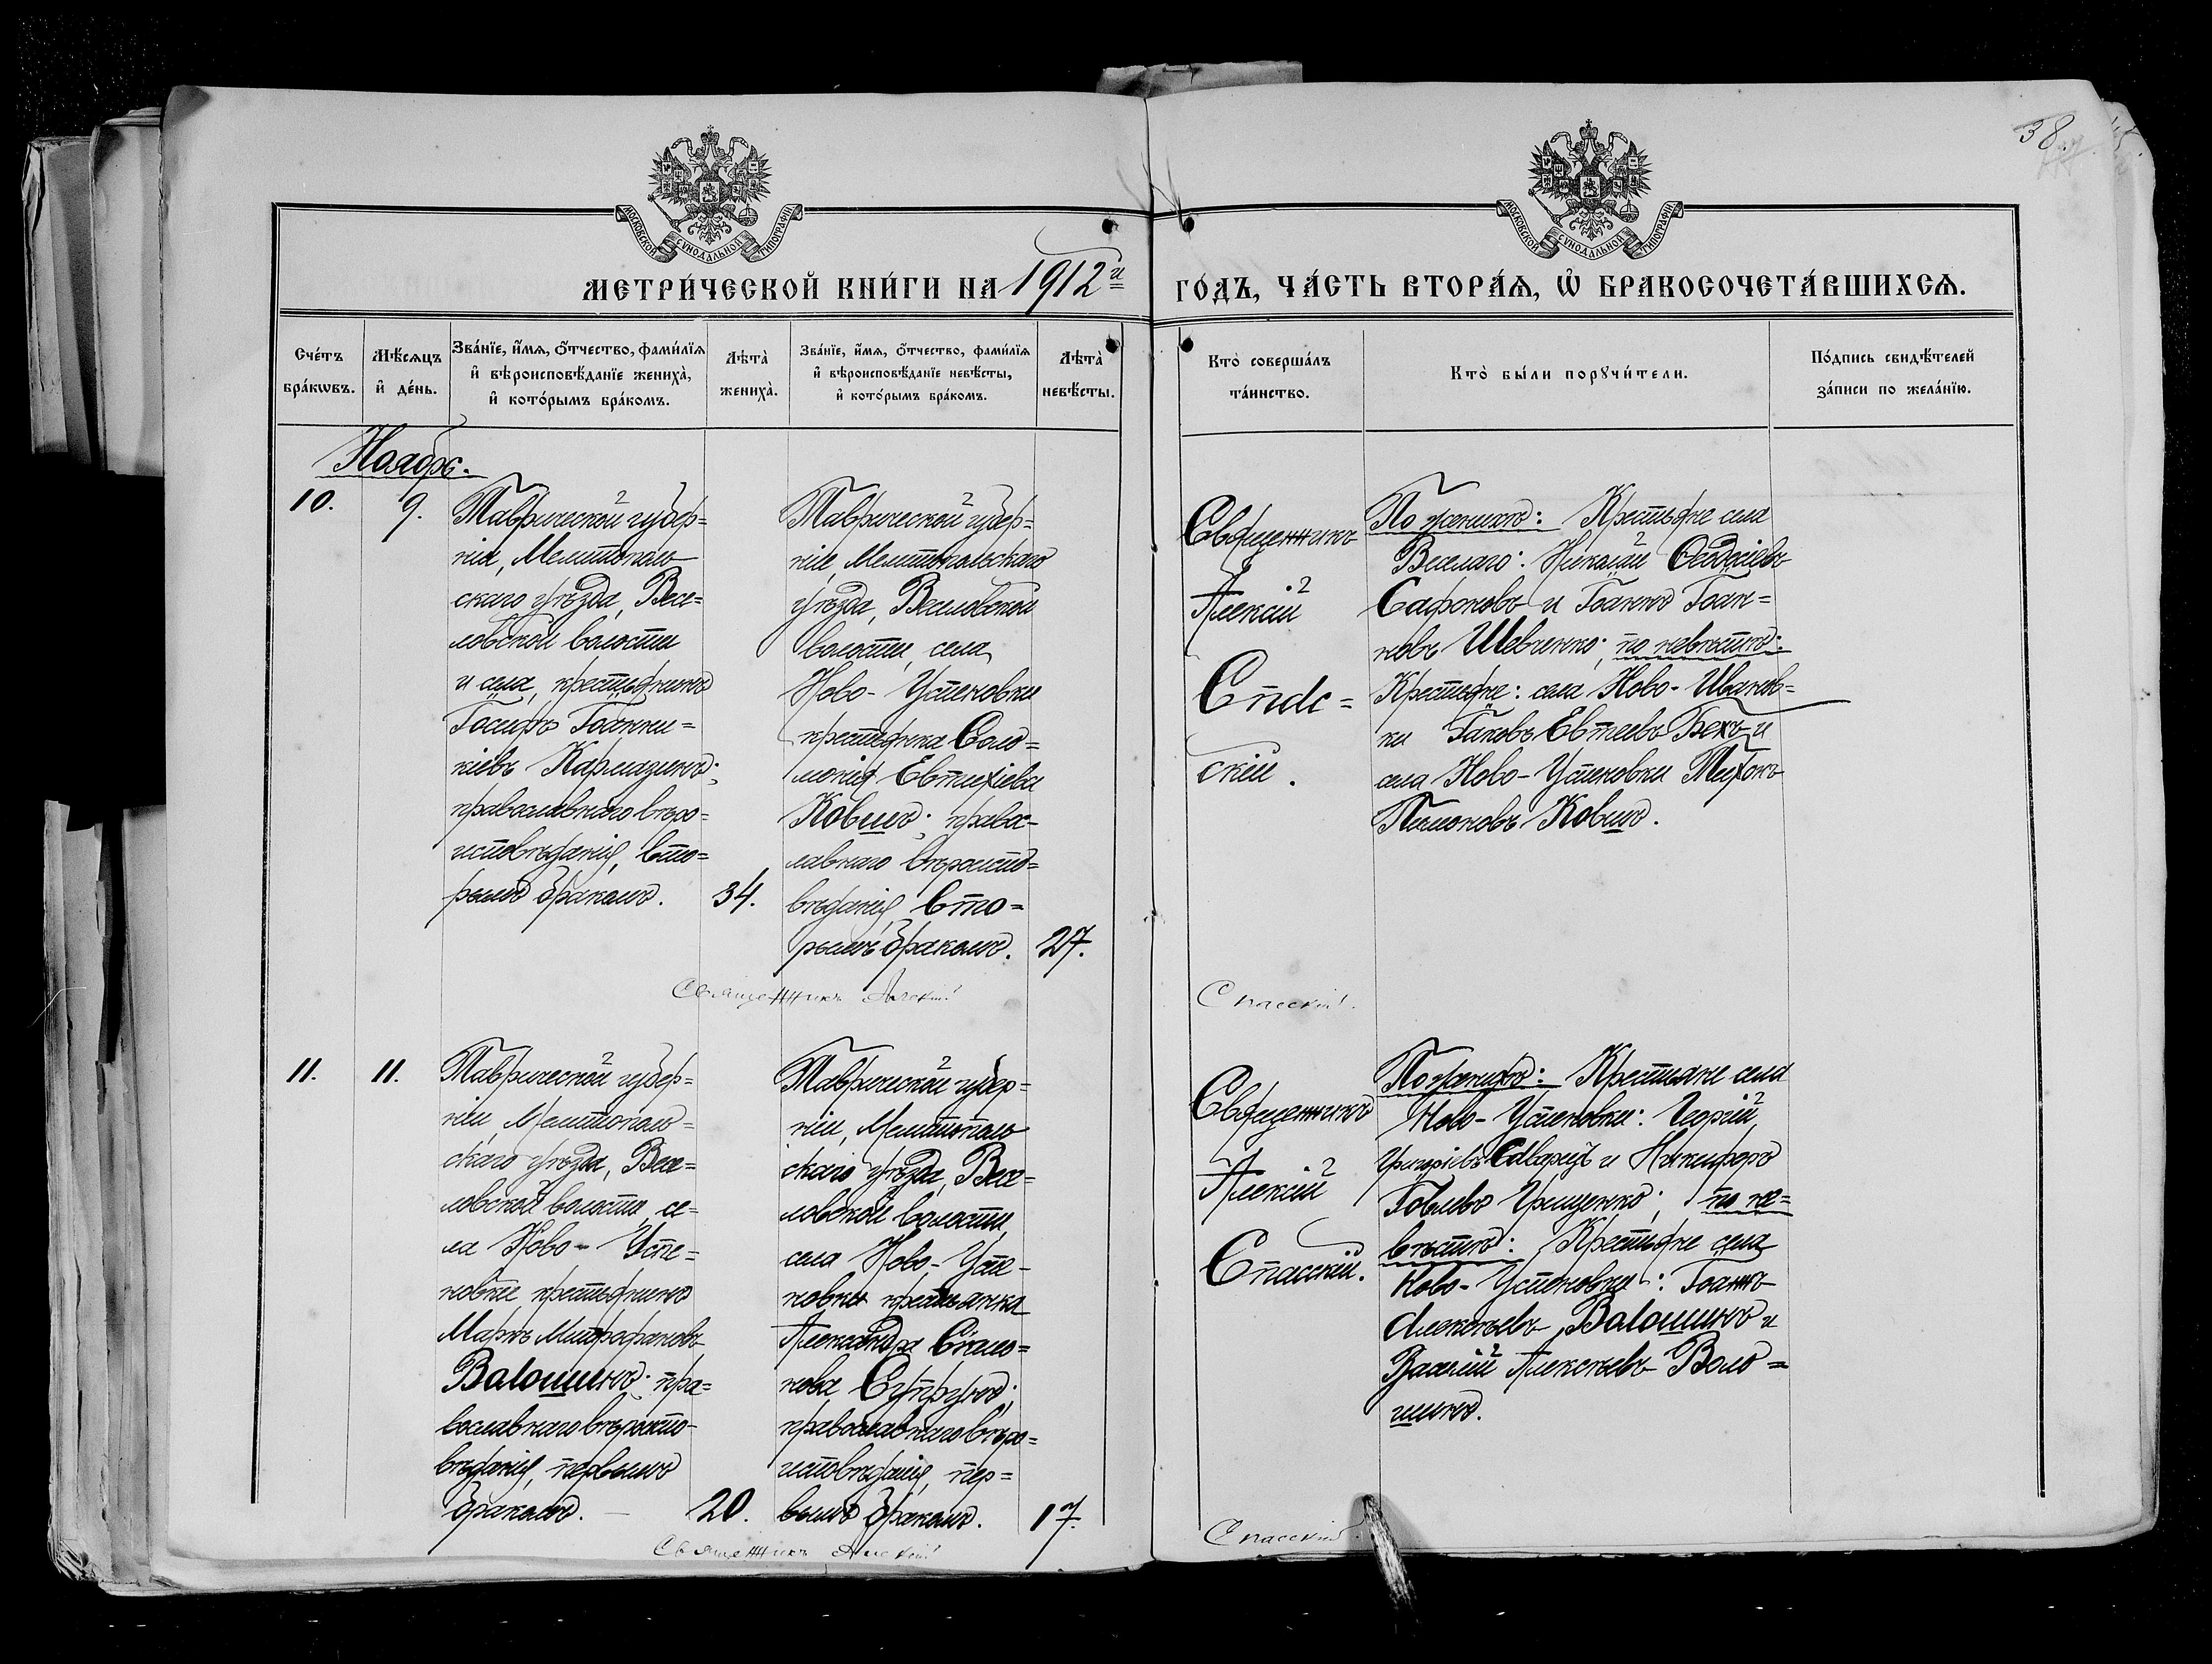 38.
МОСКОВСКОЙ СУНОДАЛЬНОЙ ТИПОГРАФІИ
МОСКОВСКОЙ СУНОДАЛЬНОЙ ТИПОГРАФІИ
МЕТРИ́ЧЕСКОЙ КНИ́ГИ НА 1912й
ГО́ДЪ, ЧА́СТЬ ВТОРА́Ѧ, Ѽ БРАКОСОЧЕТА́ВШИХСѦ.
Сче́тъ
бра́кѡвъ.
Мѣ́сѧцъ
и҆ де́нь.
Зва́нїе, и҆́мѧ, ѻ҆́тчество, фами́лїѧ
и҆ вѣроисповѣ́данїе жениха̀,
и҆ кото́рымъ бра́комъ.
Лѣта̀
жениха̀.
Зва́нїе, и҆́мѧ, ѻ҆́тчество, фами́лїѧ
и҆ вѣроисповѣ́данїе невѣ́сты,
и҆ кото́рымъ бра́комъ.
Лѣта̀
невѣ́сты.
Кто̀ соверша́лъ
та́инство.
Кто̀ бы́ли порꙋчи́тели.
По́дпись свидѣ́телей
за́писи по жела́нїю.
Ноябрь.
10.
9.
Таврической губер=
ніи, Мелитополь
скаго уѣзда, Весе=
ловской волости
и села, крестьянинъ
Іосифъ Іоанни=
кіевъ Кармазинъ;
православнаго вѣро=
исповѣданія, вто=
рымъ бракомъ.
34.
Таврической губер=
ніи, Мелитопольскаго
уѣзда, Веселовской
волости, села
Ново-Успеновки
крестьянка Соло=
монія Евтихіева
Ковшъ; право-
лавнаго вѣроиспо=
вѣданія, вто=
рымъ бракомъ.
27.
Священникъ
Алексій
Спас=
скій.
По женихѣ: Крестьяне села
Веселаго: Николай Ѳеодосіевъ
Сафоновъ и Іоаннъ Іоан=
новъ Шевченко; по невѣстѣ:
Крестьяне: села Ново-Иванов=
ки Іаковъ Евтеевъ Бехъ и
села Ново-Успеновки Тихонъ
Пимоновъ Ковшъ.
Священникъ Алексій
Спасскій.
11.
11.
Таврической губер=
ніи, Мелитополь=
скаго уѣзда, Весе=
ловской волости, се=
ла Ново-Успе=
новки крестьянинъ
Маркъ Митрофановъ
Волошинъ; пра=
вославнаго вѣроиспо-
вѣданія, первымъ
бракомъ.
20.
Таврической губер=
ніи, Мелитополь
скаго уѣзда, Весе=
ловской волости,
села Ново-Успе-
новки крестьянка
Александра Симо=
нова Супрунъ;
православнаго вѣро=
исповѣданія, пер=
вымъ бракомъ.
17.
Священникъ
Алексій
Спасскій.
По женихѣ: Крестьяне села
Ново-Успеновки: Георгій
Григоріевъ и Никифоръ
Іовлевъ Грищенко; по не=
вѣстѣ: Крестьяне села
Ново-Успеновки: Іоаннъ
Алексѣевъ Волошинъ и
Василій Алексѣевъ Воло=
шинъ.
Священникъ Алексій
Спасскій.